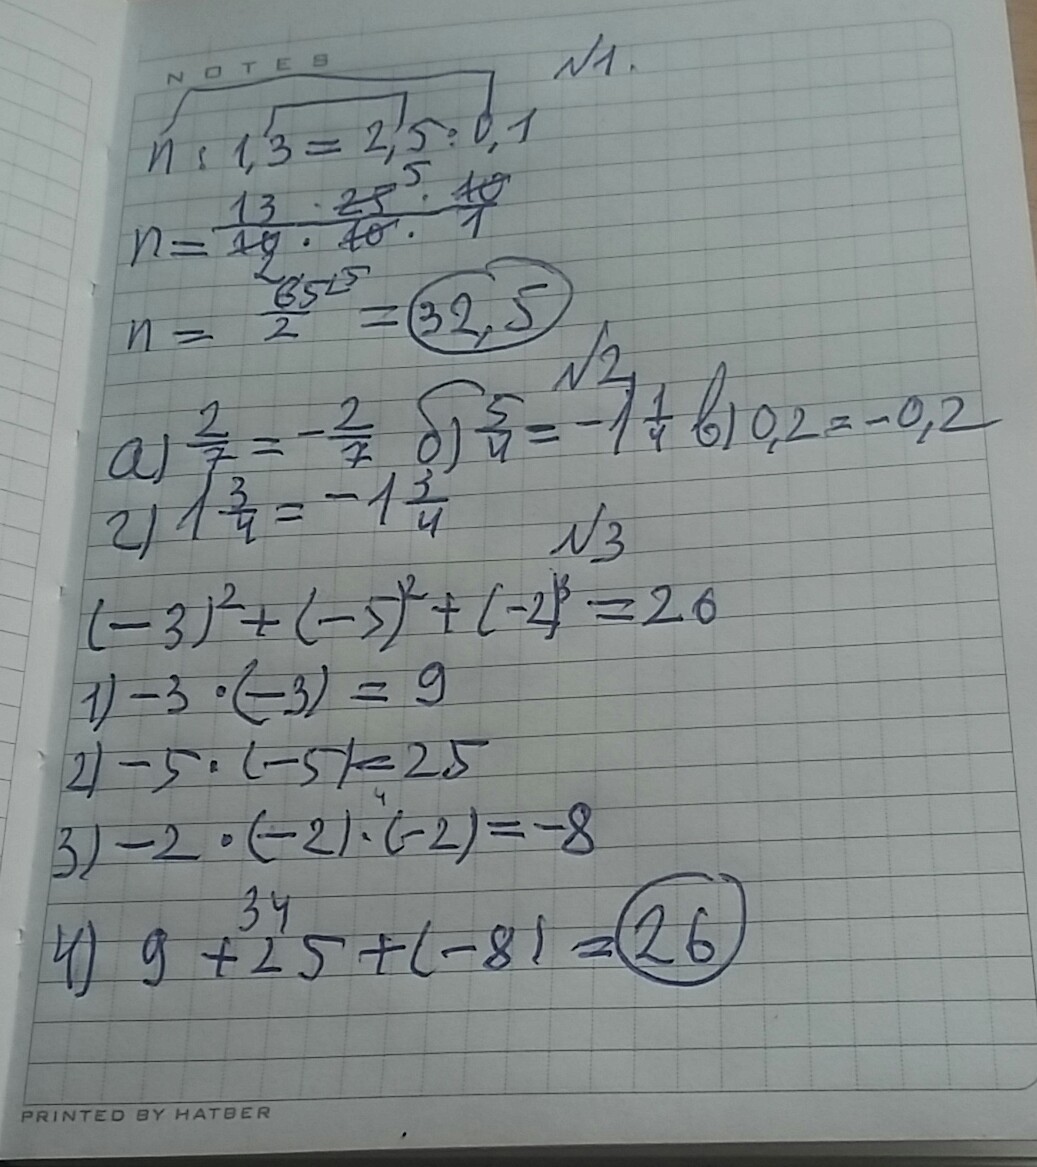 NOTES
№1.
n : 1,3 = 2,5 : 0,1
n = 13 · 25 5 · 10 / 10 2 · 10 · 1
n = 65 / 2 = 32,5
№2
а) 2/7 = -2/7 б) 5/4 = -1 1/4 в) 0,2 = -0,2
г) 1 3/4 = -1 3/4
№3
(-3)² + (-5)² + (-2)³ = 26
1) -3 · (-3) = 9
2) -5 · (-5) = 25
4
3) -2 · (-2) · (-2) = -8
34
4) 9 + 25 + (-8) = 26
PRINTED BY HATBER